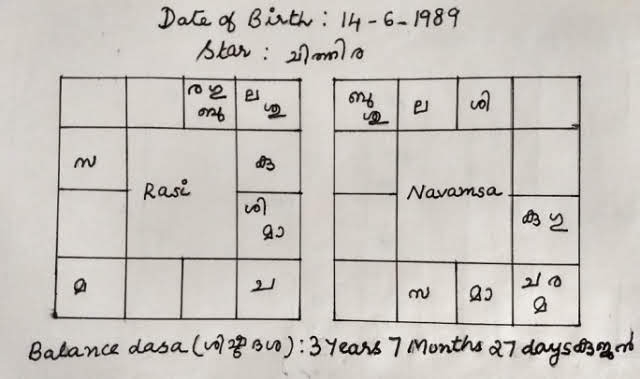 Date of Birth : 14-6-1989
Star : ചിത്തിര
ര ഗു ല
ബു ശു
സ കു
Rasi
ശി
മാ
മ ച
ബു ല ശി
ശു
Navamsa
കു ഗു
സ മാ ച ര
മ
Balance dasa (ശിഷ്ട ദശ) : 3 Years 7 Months 27 days കുജൻ